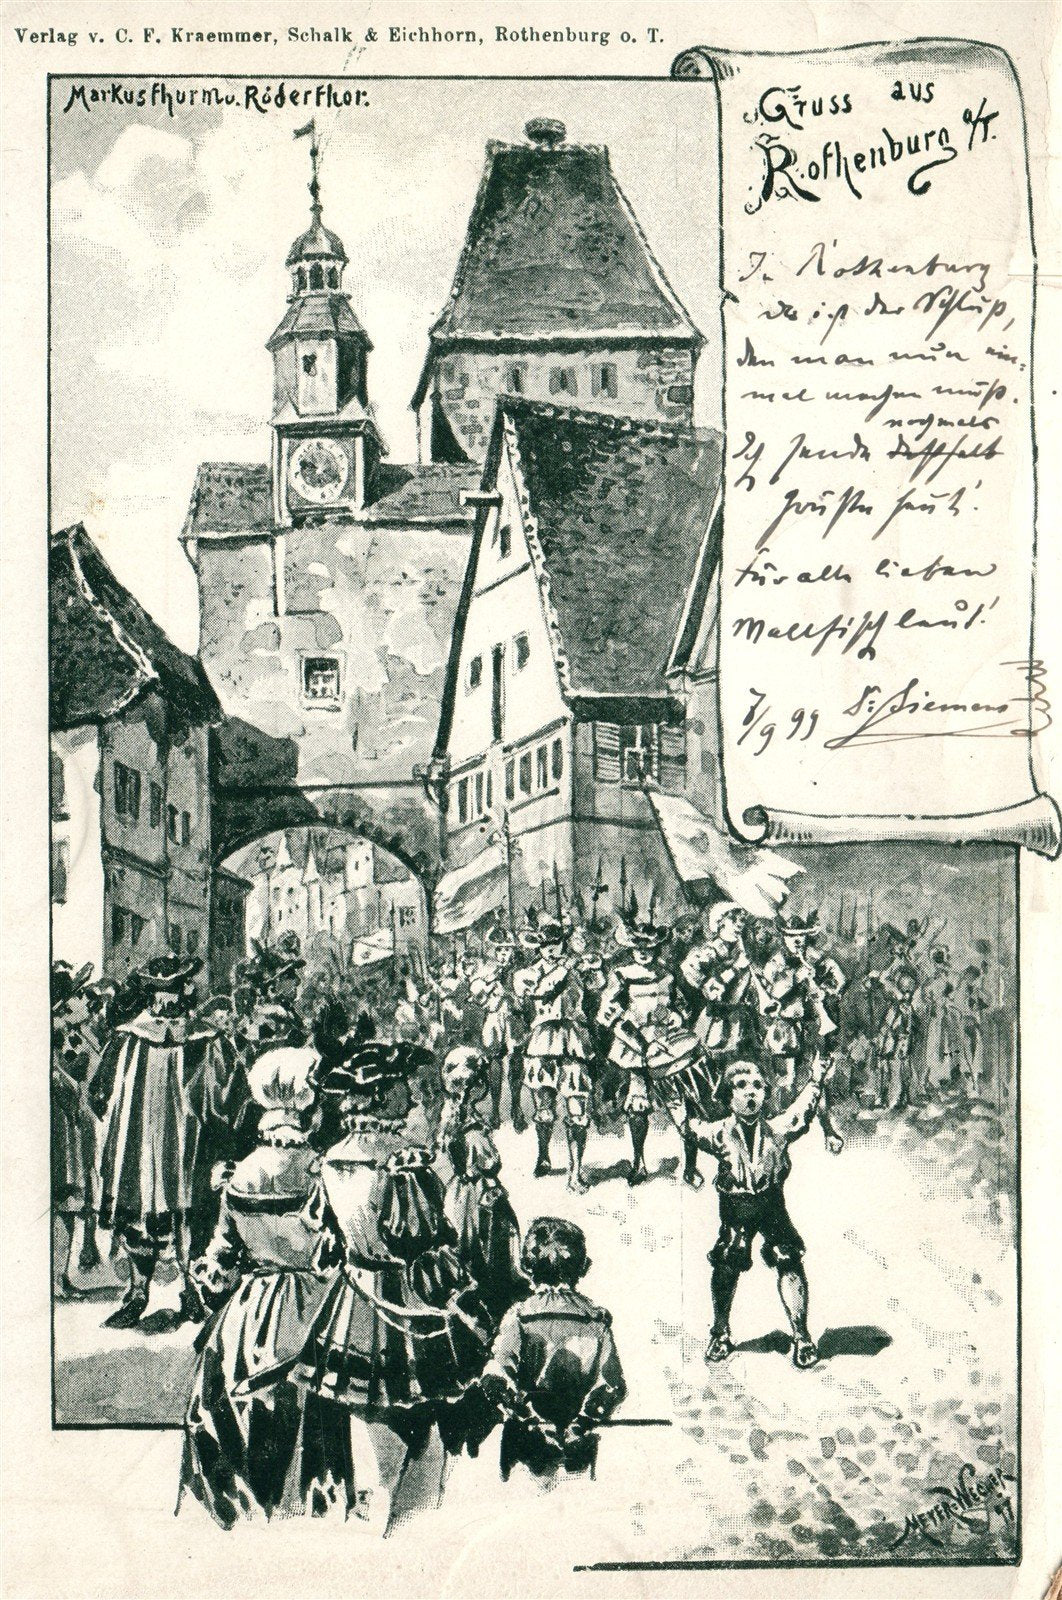 Verlag v. C. F. Kraemmer, Schalk & Eichhorn, Rothenburg o. T.
Markusthurm u. Röderthor.
Gruss aus
Rothenburg a/T.
In Rothenburg
da ist der Schluß,
den man nun ein-
mal machen muß.
nochmals
Ich sende
Grüße heut!
Für alle lieben
Wallfischleut!
7/9 99 Siemens
MEYER-WEGNER
97